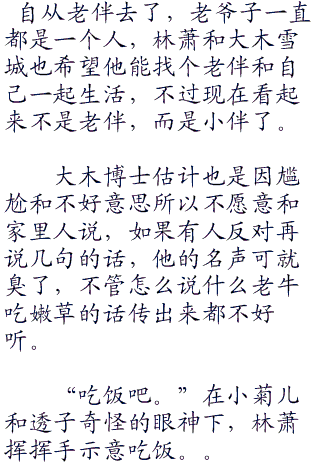 自从老伴去了，老爷子一直
都是一个人，林萧和大木雪
城也希望他能找个老伴和自
己一起生活，不过现在看起
来不是老伴，而是小伴了。
大木博士估计也是因尴
尬和不好意思所以不愿意和
家里人说，如果有人反对再
说几句的话，他的名声可就
臭了，不管怎么说什么老牛
吃嫩草的话传出来都不好
听。
“吃饭吧。”在小菊儿
和透子奇怪的眼神下，林萧
挥挥手示意吃饭。。